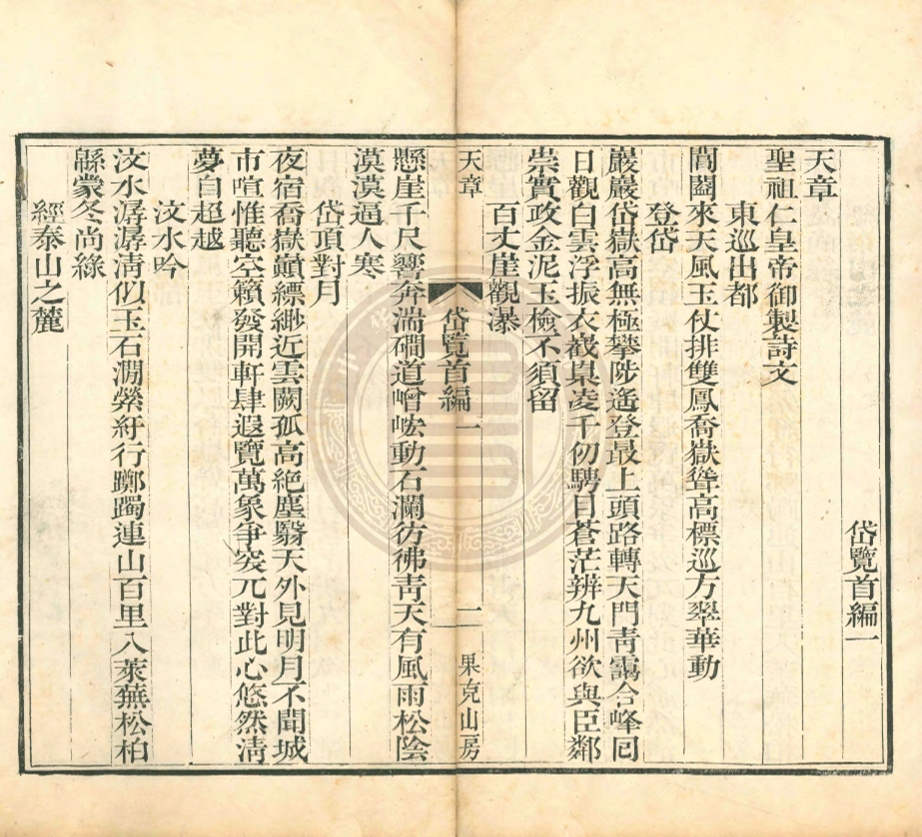 岱覽首編一
天章
聖祖仁皇帝御製詩文
東巡出都
閶闔來天風玉仗排雙鳳喬嶽聳高標巡方翠華動
登岱
巖巖岱嶽高無極攀陟遙登最上頭路轉天門青靄合峰回
日觀白雲浮振衣嶻嵲凌千仞騁目蒼茫辨九州欲與臣鄰
崇實政金泥玉檢不須留
百丈崖觀瀑
天章
岱覽首編一
一
果克山房
懸崖千尺響奔湍磵道噌吰動石瀾彷彿青天有風雨松陰
漠漠逼人寒
岱頂對月
夜宿喬嶽巔縹緲近雲闕孤高絶塵翳天外見明月不聞城
市喧惟聽空籟發開軒肆遐覽萬象爭突兀對此心悠然清
夢自超越
汶水吟
汶水潺潺清似玉石澗縈紆行躑躅連山百里入萊蕪松柏
緜蒙冬尚綠
經泰山之麓